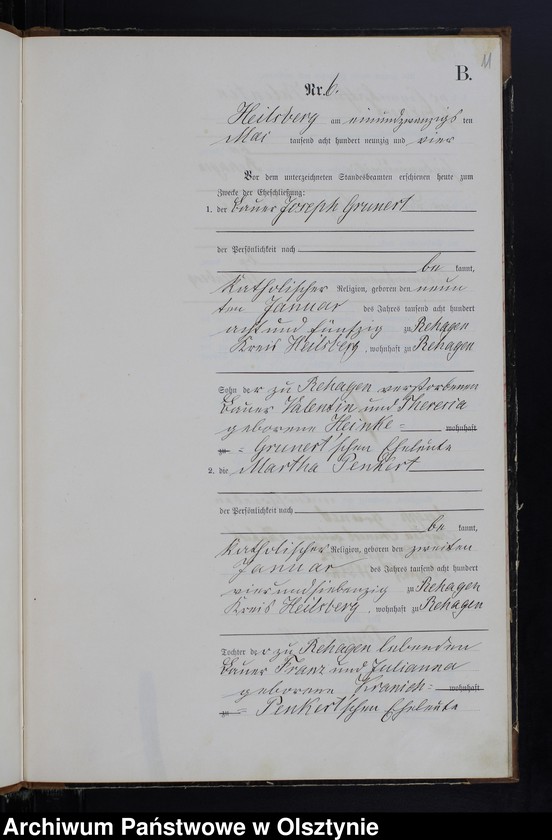 11
B.
Nr. 6.
Heilsberg am einundzwanzigsten
Mai tausend acht hundert neunzig und vier
Vor dem unterzeichneten Standesbeamten erschienen heute zum
Zwecke der Eheschließung:
1. der Bauer Joseph Grunert
der Persönlichkeit nach
be kannt,
Katholischer Religion, geboren den neun
ten Januar des Jahres tausend acht hundert
acht und fünfzig zu Rehagen
Kreis Heilsberg, wohnhaft zu Rehagen
Sohn der zu Rehagen verstorbenen
Bauer Valentin und Theresia
geborene Heinke = wohnhaft
zu = Grunert'schen Eheleute
2. die Martha Penkert
der Persönlichkeit nach
be kannt,
Katholischer Religion, geboren den zweiten
Januar des Jahres tausend acht hundert
vierundsiebenzig zu Rehagen
Kreis Heilsberg, wohnhaft zu Rehagen
Tochter der zu Rehagen lebenden
Bauer Franz und Julianna
geborene Kranich = wohnhaft
zu = Penkert'schen Eheleute
Archiwum Państwowe w Olsztynie